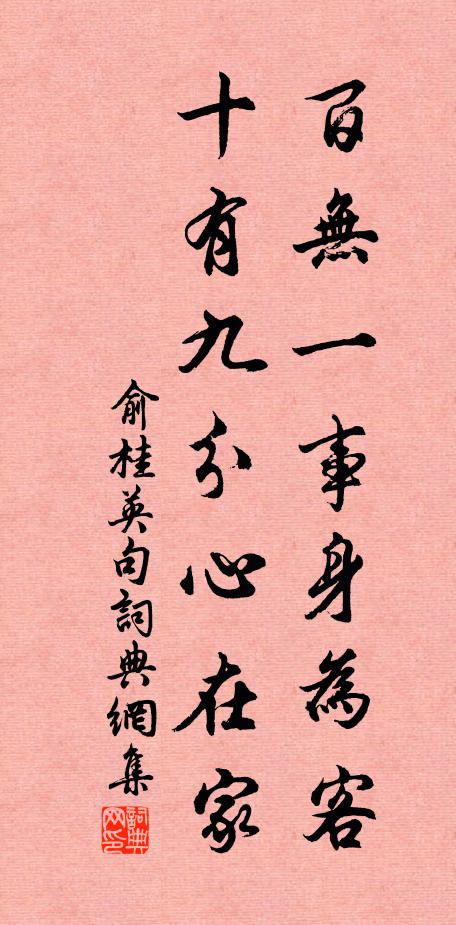 百無一事身為客
十有九分心在家
俞桂英句詞典網集
詞典网印